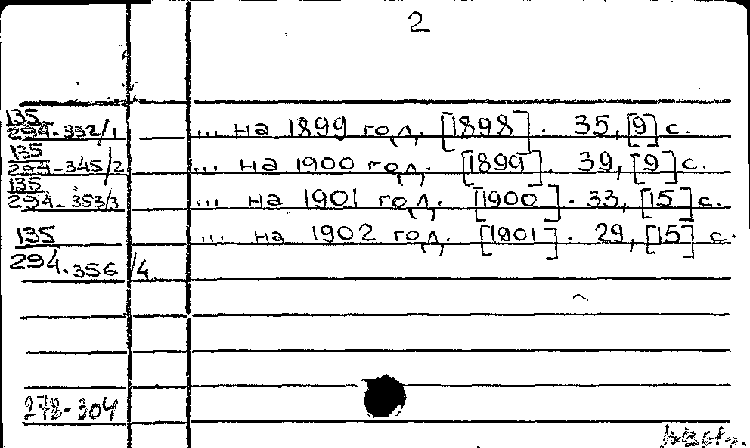 2
135
294-332/1 ... на 1899 год. [1898]. 35, [9] с.
135
294-345/2 ... на 1900 год. [1899]. 39, [9] с.
135
294-353/3 ... на 1901 год. [1900]. 33, [15] с.
135 ... на 1902 год. [1901]. 29, [15] с.
294.356/4
278-304